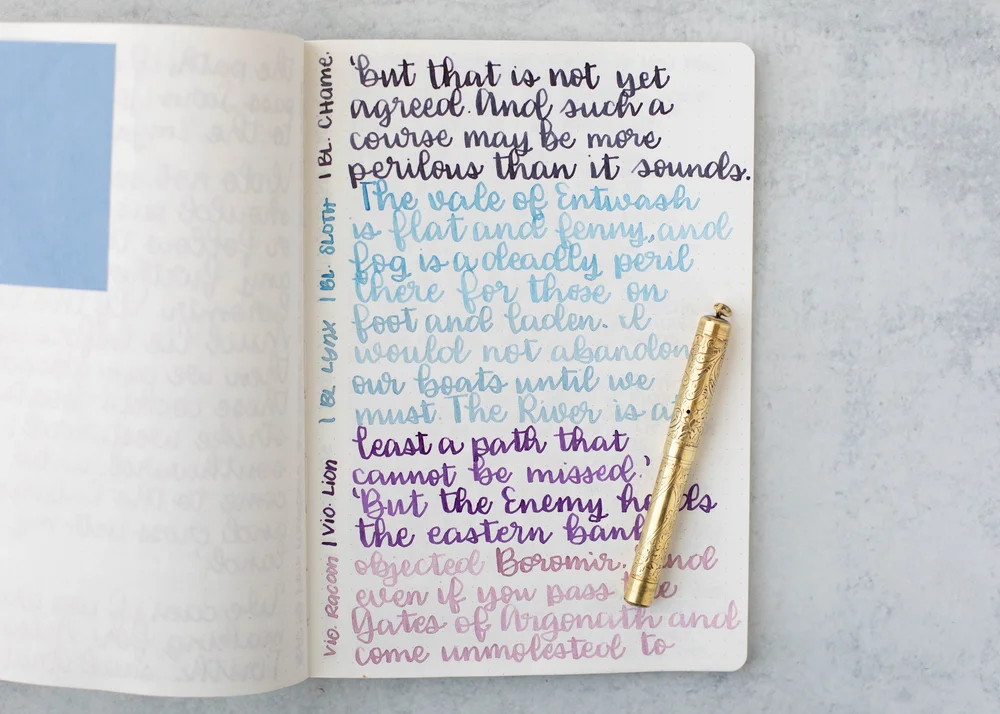 'But that is not yet
agreed. And such a
course may be more
perilous than it sounds.
The vale of Entwash
is flat and fenny, and
fog is a deadly peril
there for those on
foot and laden. I
would not abandon
our boats until we
must. The River is at
least a path that
cannot be missed.'
'But the Enemy holds
the eastern bank
objected Boromir. And
even if you pass the
Gates of Argonath and
come unmolested to
| BL. CHAME.
| BL. SLOTH
| BL LYNX
| VIO. LION
VIO. RACOON